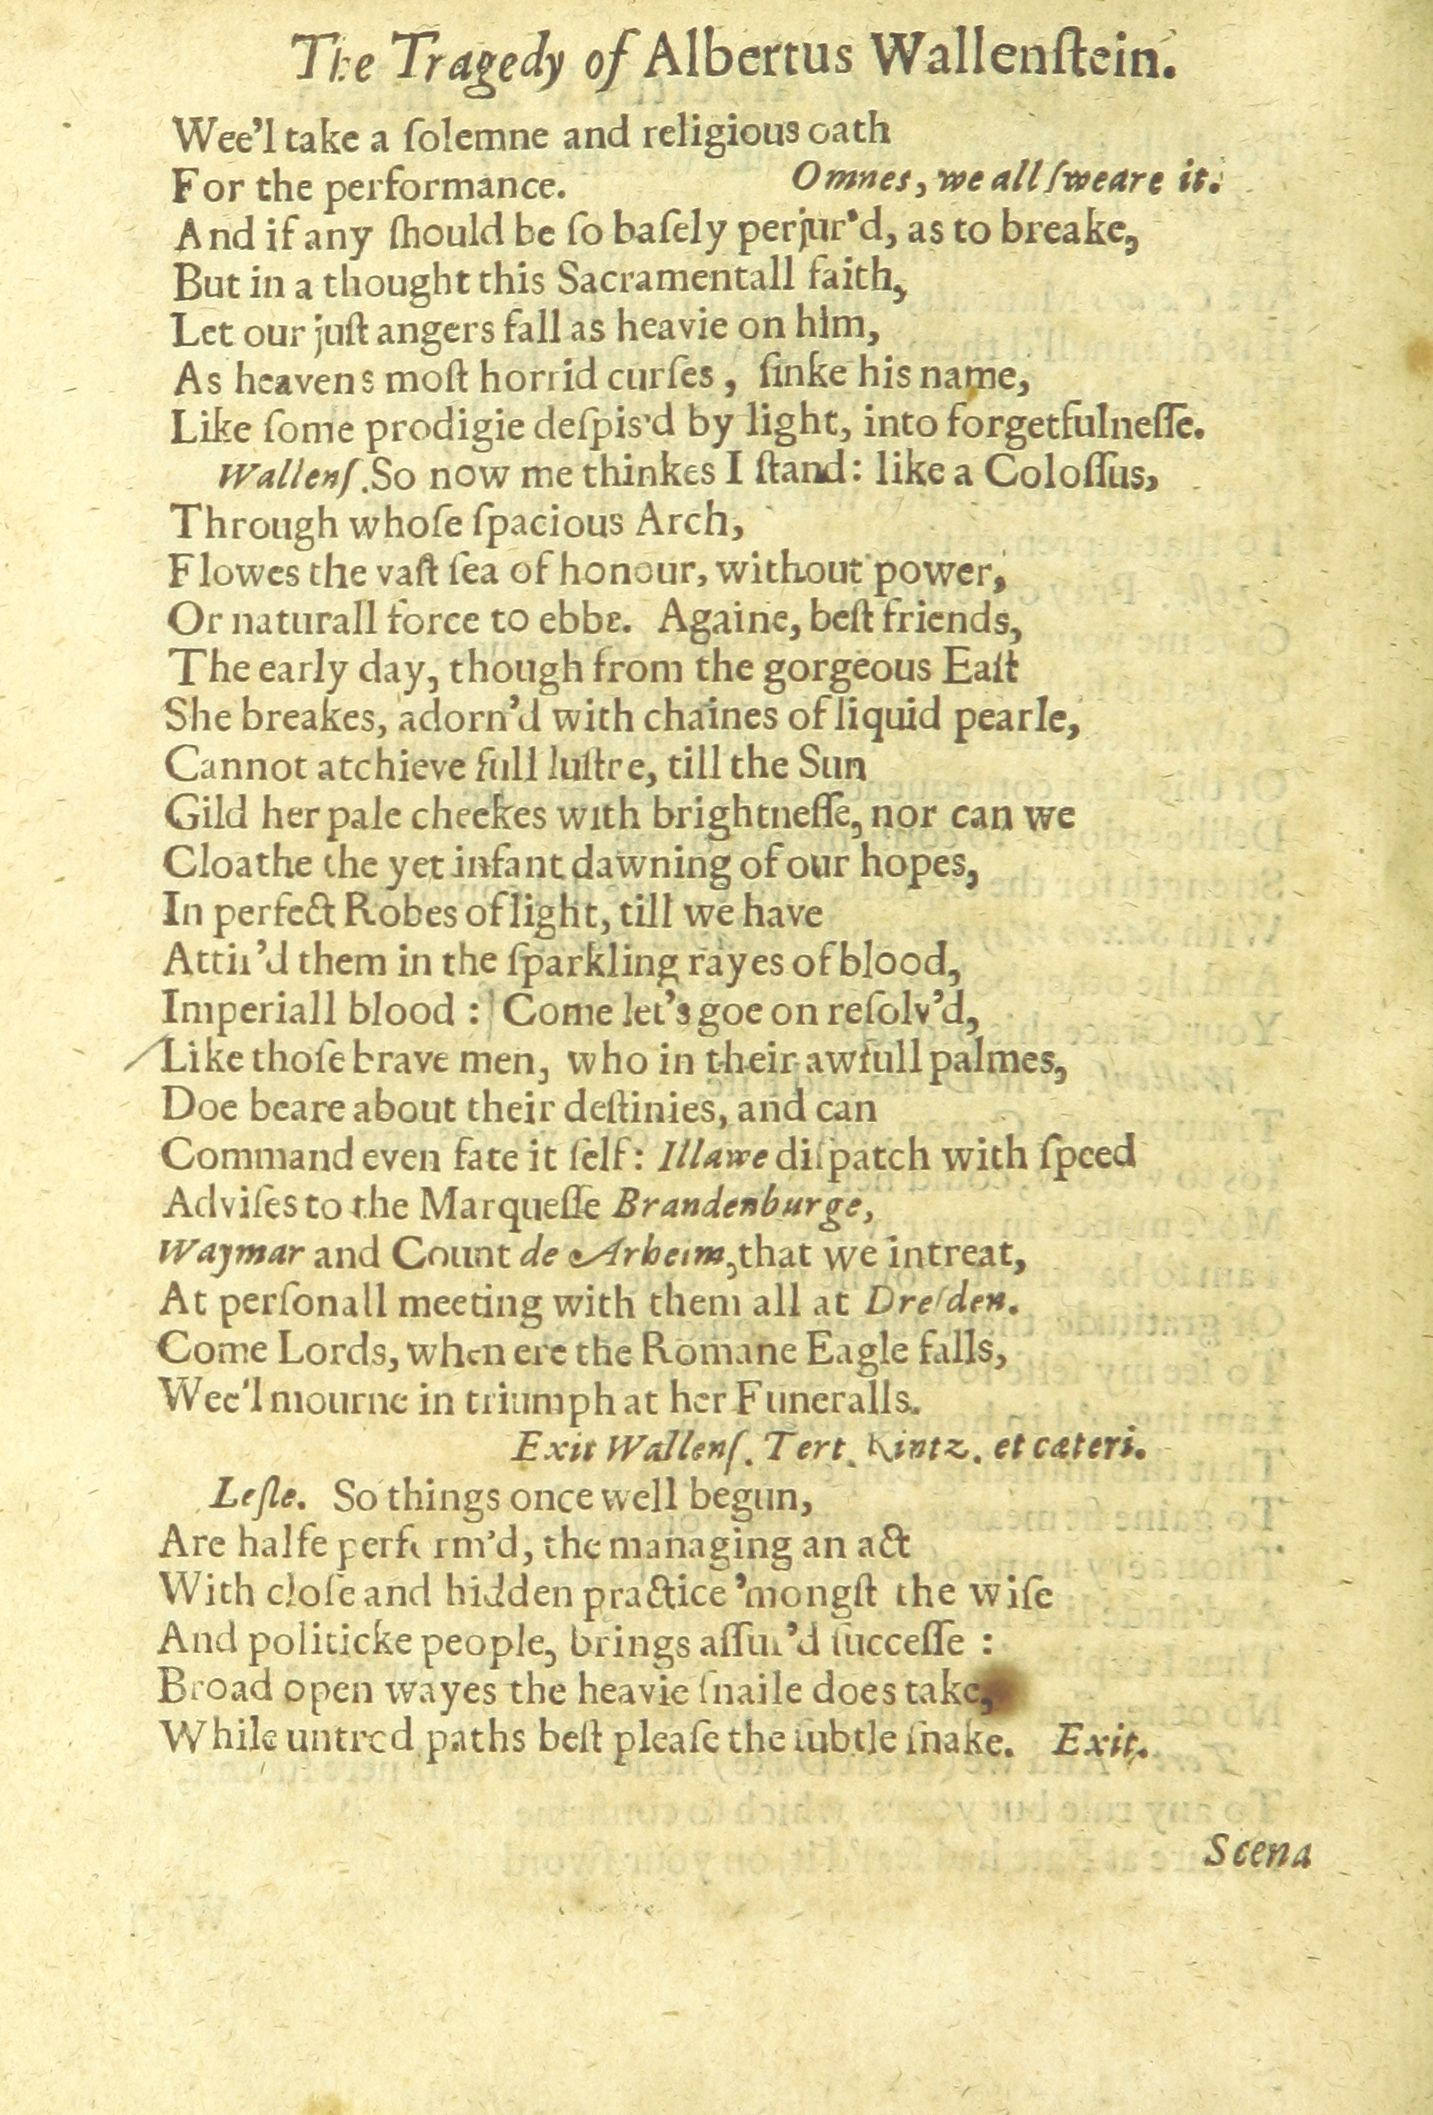 The Tragedy of Albertus Wallenſtein.
Wee'l take a ſolemne and religious oath
For the performance. Omnes, we all ſweare it.
And if any ſhould be ſo baſely perjur'd, as to breake,
But in a thought this Sacramentall faith,
Let our juſt angers fall as heavie on him,
As heavens moſt horrid curſes, ſinke his name,
Like ſome prodigie deſpis'd by light, into forgetfulneſſe.
Wallenſ. So now me thinkes I ſtand: like a Coloſſus,
Through whoſe ſpacious Arch,
Flowes the vaſt ſea of honour, without power,
Or naturall force to ebbe. Againe, beſt friends,
The early day, though from the gorgeous Eaſt
She breakes, adorn'd with chaines of liquid pearle,
Cannot atchieve full luſtre, till the Sun
Gild her pale cheekes with brightneſſe, nor can we
Cloathe the yet infant dawning of our hopes,
In perfect Robes of light, till we have
Attir'd them in the ſparkling rayes of blood,
Imperiall blood: Come let's goe on reſolv'd,
Like thoſe brave men, who in their awfull palmes,
Doe beare about their deſtinies, and can
Command even fate it ſelf: Illawe diſpatch with ſpeed
Adviſes to the Marqueſſe Brandenburge,
Waymar and Count de Arheim, that we intreat,
At perſonall meeting with them all at Dreſden.
Come Lords, when ere the Romane Eagle falls,
Wee'l mourne in triumph at her Funeralls.
Exit Wallenſ. Tert. Kintz. et cæteri.
Leſle. So things once well begun,
Are halfe perform'd, the managing an act
With cloſe and hidden practice 'mongſt the wiſe
And politicke people, brings aſſur'd ſucceſſe:
Broad open wayes the heavie ſnaile does take,
While untred paths beſt pleaſe the ſubtle ſnake. Exit.
Scena